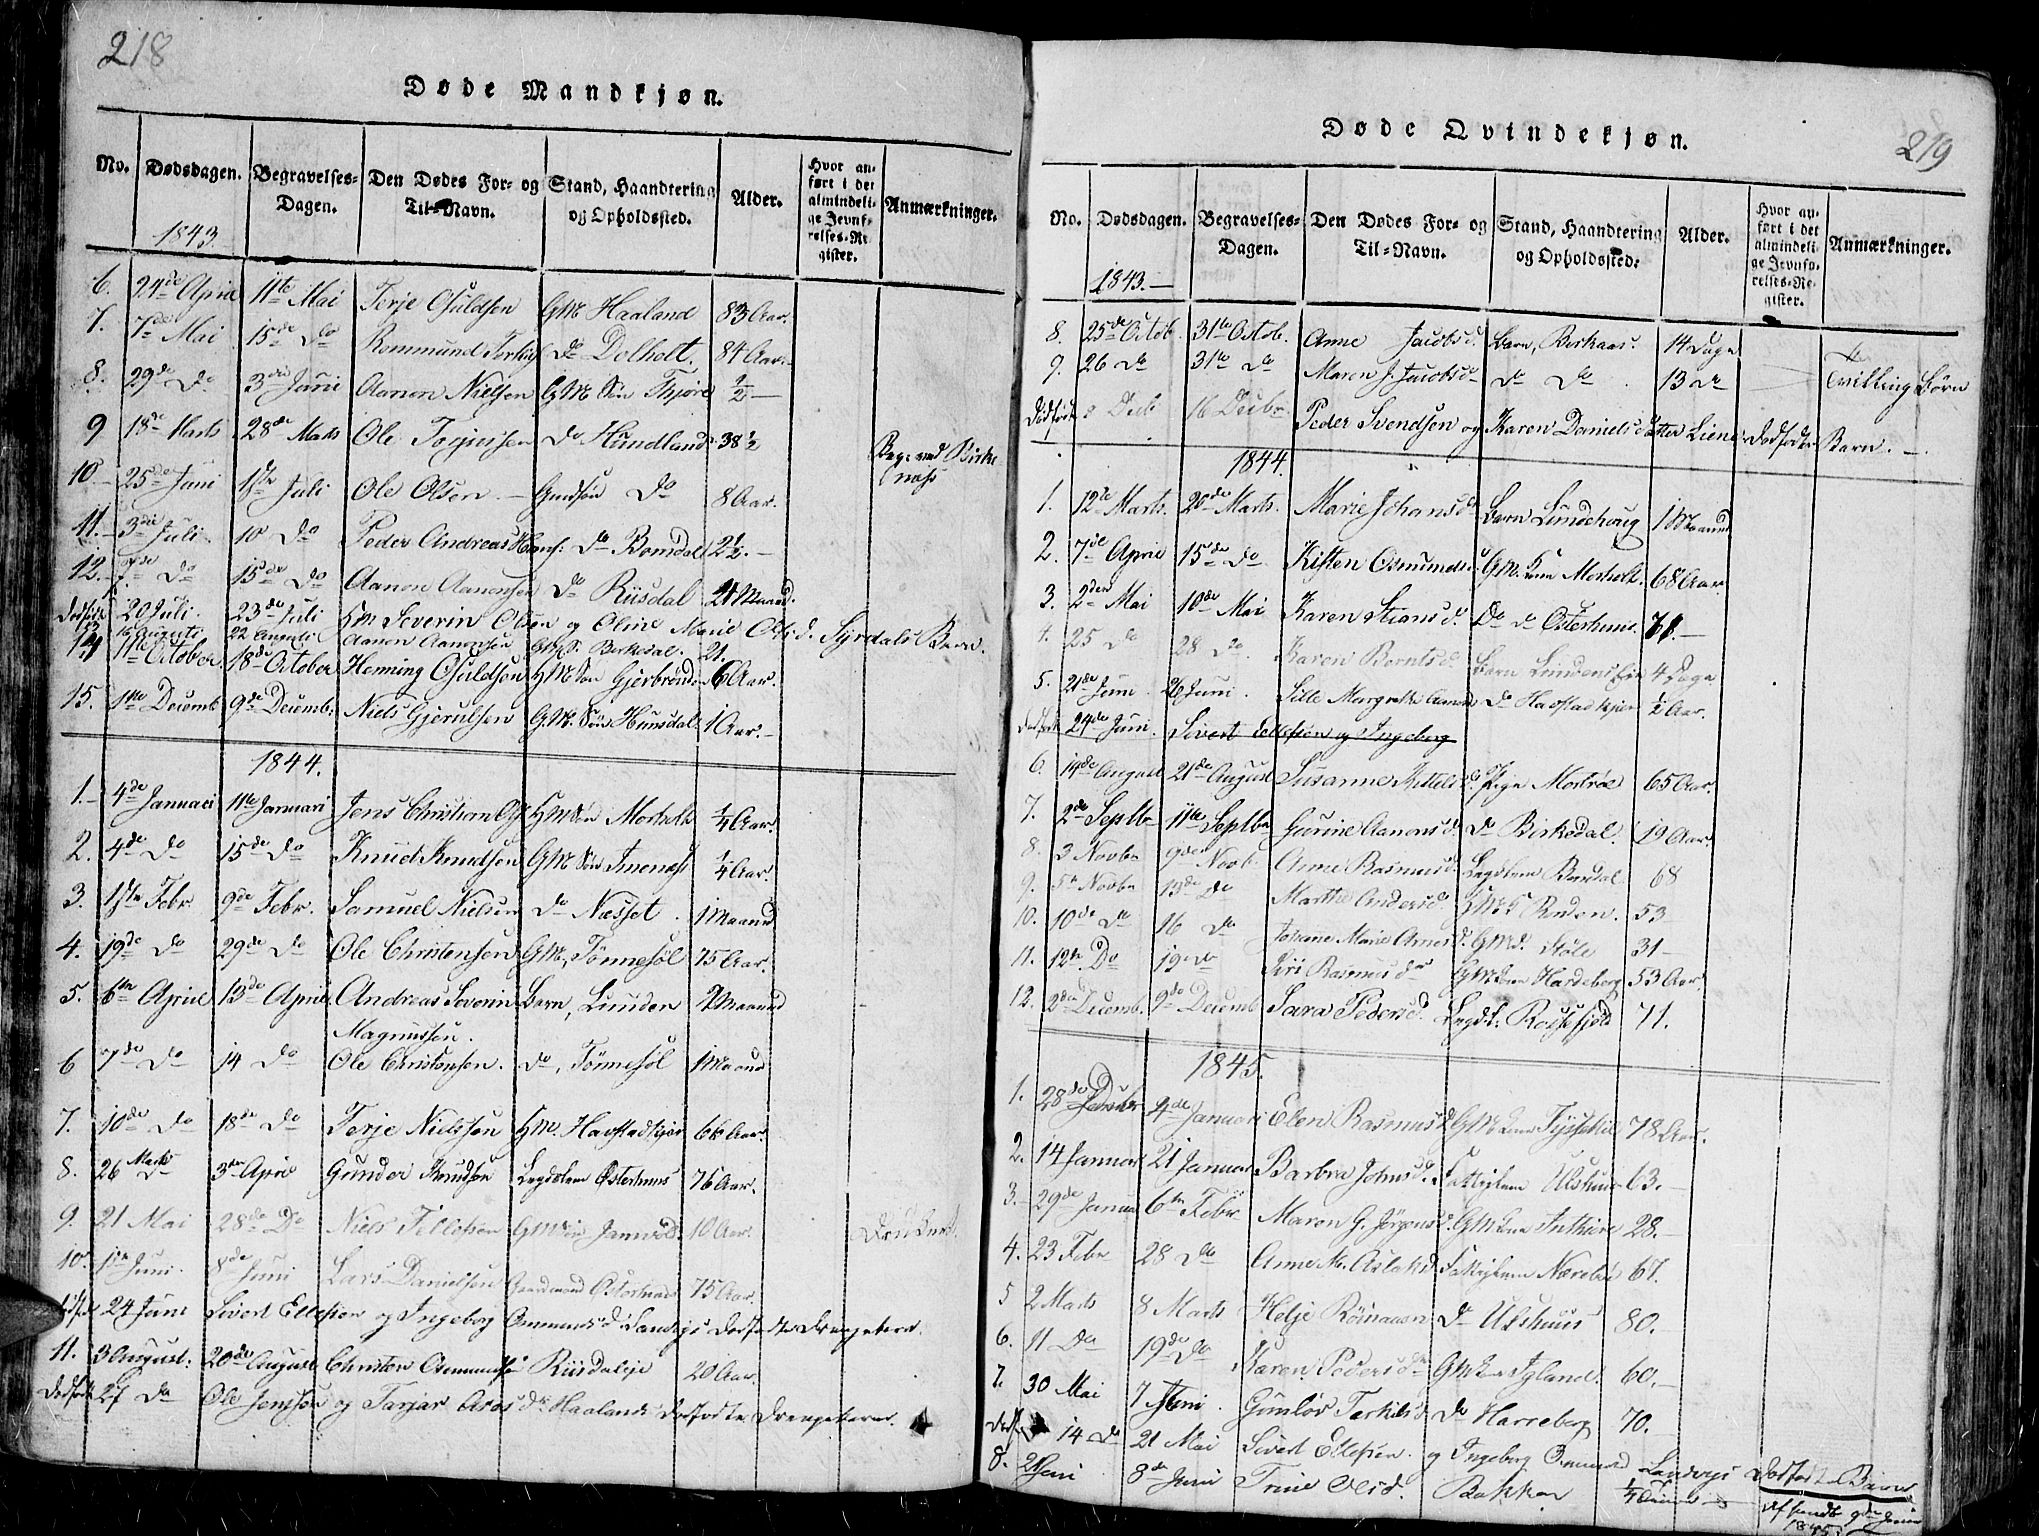 218
Døde Mandkjøn.
No. Dødsdagen. Begravelses-Dagen. Den Dødes For- og Til-Navn. Stand, Haandtering og Opholdssted. Alder. Hvor anført i det almindelige Jevnførelses-Register. Anmærkninger.
1843.
6. 24de April 11te Mai Terje Osuldsen GM Haaland 83 Aar.
7. 7de Mai 15de Do Rommund Terkils Do Dolholt. 84 Aar.
8. 29de Do 3die Juni Aanon Nielsen GM Søn Fjøre 1/2
9 18de Marts 28de Marts Ole Torjussen Do Hundland 38 1/2
Beg. ved Birkenæss
10 25de Juni 1ste Juli Ole Olsen Do 8 Aar.
11. 3die Juli 10 Do Peder Andreas Hans: Do Bomdal 2 1/2.
12. 7de Do 15de Do Aanon Aanonsen Do Riisdal 21 Maand.
Dødfødt 20 Juli. 23de Juli HM Severin Olsen og Oline Marie Olsd. Syrdals Barn.
22 August Aanon Aanonsen GMS. Berkedal. 21.
14 11te October 18de October Henning Osuldsen HM Søn Gjerbrønd 6 Aar.
15. 1ste Decemb 9de Decemb: Niels Gjerulsen GM. Søn Hunsdal 1 Aar.
1844.
1. 4de Januari 11te Januari Jens Christian HM Søn Mosholt 1/4 Aar.
2. 4de Do 15de Do Knud Knudsen GM Søn 1/4 Aar.
3. 1ste Febr 9de Febr. Samuel Nielsen Do Næsset. 1 Maaned
4. 19de Do 29de Do Ole Christensen GM, Tønnesøl 75 Aar.
5. 6te April 13de April Andreas Severin Barn, Lunden Maaned
Magnussen.
6 7de Do 14 Do Ole Christensen. Do, Tønnesøl 1 Maaned
7. 10de Do 18de Do Terje Nielssen HM. Havstadkjær 66 Aar.
8. 26 Marts 3die April Gunder Knudsen Lægdslem Osterhuus 76 Aar.
9. 21 Mai 28de Do Niels Tellefsen GM Søn 10 Aar. Druknet.
10. 1ste Juni. 8de Juni Lars Danielsen Gaardmand Osterhuus 75 Aar.
Dødfødt 24 Juni Sivert Ellefsen og Ingeborg Ommunds d. Landvigs Dødfødte Drengebarn.
11. 3 August. 20de August Christen Osmundsen Riisdaleje 20 Aar.
Dødfødt 27 Do Ole Jensson og Tarjær Aros dr Haalands Dødfødte Drengebarn
219
Døde Qvindekjøn.
No. Dødsdagen. Begravelses-Dagen. Den Dødes For- og Til-Navn. Stand, Haandtering og Opholdssted. Alder. Hvor anført i det almindelige Jevnførelses-Register. Anmærkninger.
1843.
8. 25de Octob. 31te Octob. Anne Jacobs d. Barn, Birkaas. 14 Dage
9. 26 Do 31te Do Maren J. Jacobsd Do Do 13 Do Tvilling Børn
Dødfødt 8 Decb 16 Decbr. Peder Svendsen og Karen Danielsdatter Liene Dødfødte Barn.
1844.
1. 12te Marts. 20de Marts. Marie Johans d Barn Lindehoug 1 Maaned
2. 7de April 15de Do Kisten Osmunds d GM. Kone Mosholt. 68 Aar
3. 2den Mai 10de Mai Karen Stians d. Do Do Osterhuus. 71.
4. 25 Do 28 Do. Karen Bernts d. Barn Lunden 4 Dage
5. 21de Juni 26 Juni. Sille Margrethe Aanonds Do Havstadkjær 1/2 Aar.
Dødfødt 24de Juni. Sivert Ellefsen og Ingeborg
6. 14de August 21de August Susanne Nilsd. Pige Mostrøe 65 Aar.
7. 2de Septbr 11te Septbr Gurine Aanons d. Do Birkedal. 19 Aar.
8. 3 Novbr 9de Novb. Anne Rasmus d. Lægdslem Bomdal 68
9. 5te Novbr 13de Do Marthe Anders d HMK Ruden. 53
10. 10de Do 16 Do Johanne Marie Arnes d. GMd. Støle 31
11. 12te Do 19de Do Siri Rasmusd GM Kone Hardeberg 53 Aar
12. 2den Decemb. 9de Decemb Sara Peders d. Lægdl. Rossefjeld 71.
1845.
1. 28de Decbr 4de Januari Elen Rasmus d GM Kone 78 Aar.
2. 14 Januar 21 Januar Barbra Johns d. Fattiglem Ulshuus 63.
3. 29de Januar 6te Febr Maren G. Jørgens d. GM Kone Inthire 28.
4. 23 Febr 28 Do Anne M. Aslaks d. Fattiglem Nærebøe 67.
5 2 Marts 8 Marts Helje Do Ulshuus 80.
6. 11 Do 19de Do Karen Peders dr GM Kone Igland. 60.
7. 30 Mai 7 Juni. Gunløv Terkils d. Do Harreberg 70.
Dødf. 14 Do 21 Mai Sivert Ellefsen. og Ingeborg Ommund Landvigs Dødfødte Barn
8. 2 Juni 8de Juni Trine Olsd. Bakken 1/4
Afsendt 9de Juni 1845